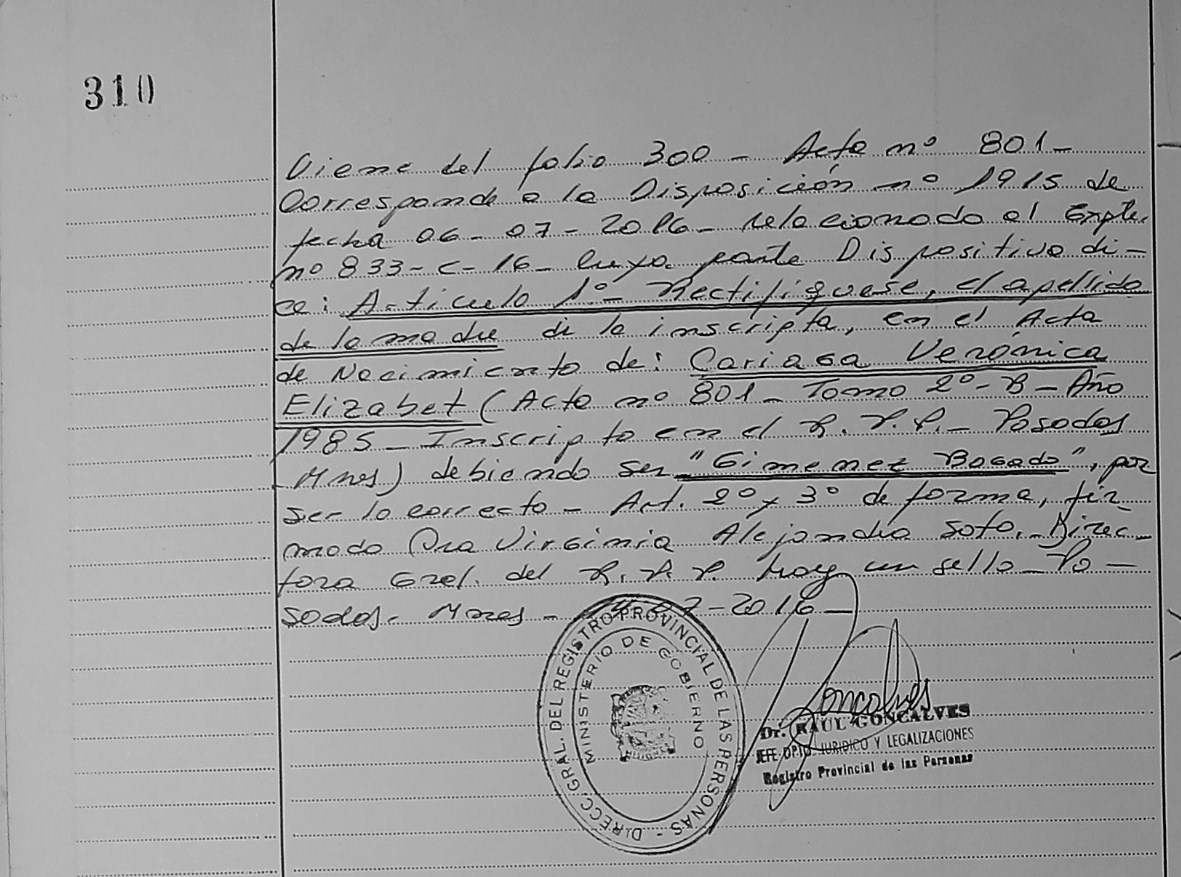 310
Viene del folio 300 - Acta nº 801 -
Corresponde a la Disposición nº 1915 de
fecha 06 - 07 - 2016 - relacionado al Expte.
nº 833 - C - 16 - Cuya parte Dispositiva di-
ce: Artículo 1º - Rectifíquese, el apellido
de la madre de la inscripta, en el Acta
de Nacimiento de: Cariaga Verónica
Elizabet (Acta nº 801 - Tomo 2º - B - Año
1985 - Inscripta en el R. P. P. - Posadas
Mnes) debiendo ser "Gimenez Bogado", por
ser lo correcto - Art. 2º y 3º de forma, fir
mado Dra Virginia Alejandra Soto. - Direc-
tora Gral. del R. P. P. hay un sello - Po -
sadas - Mnes - -2016 -
DIRECC. GRAL. DEL REGISTRO PROVINCIAL DE LAS PERSONAS -
MINISTERIO DE GOBIERNO
Goncalves
Dr. RAUL GONCALVES
JEFE DPTO. JURIDICO Y LEGALIZACIONES
Registro Provincial de las Personas